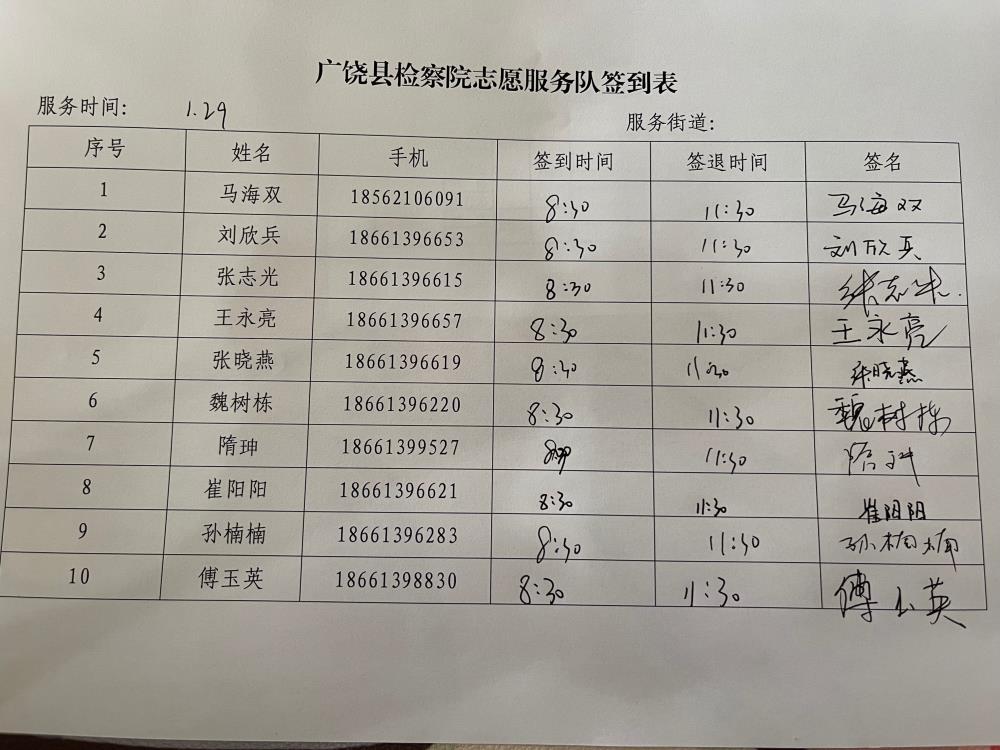 广饶县检察院志愿服务队签到表
服务时间: 1.29 服务街道:
序号 姓名 手机 签到时间 签退时间 签名
1 马海双 18562106091 8:30 11:30 马海双
2 刘欣兵 18661396653 8:30 11:30 刘欣兵
3 张志光 18661396615 8:30 11:30 张志光
4 王永亮 18661396657 8:30 11:30 王永亮
5 张晓燕 18661396619 8:30 11:30 张晓燕
6 魏树栋 18661396220 8:30 11:30 魏树栋
7 隋珅 18661399527 11:30 隋珅
8 崔阳阳 18661396621 8:30 11:30 崔阳阳
9 孙楠楠 18661396283 8:30 11:30 孙楠楠
10 傅玉英 18661398830 8:30 11:30 傅玉英